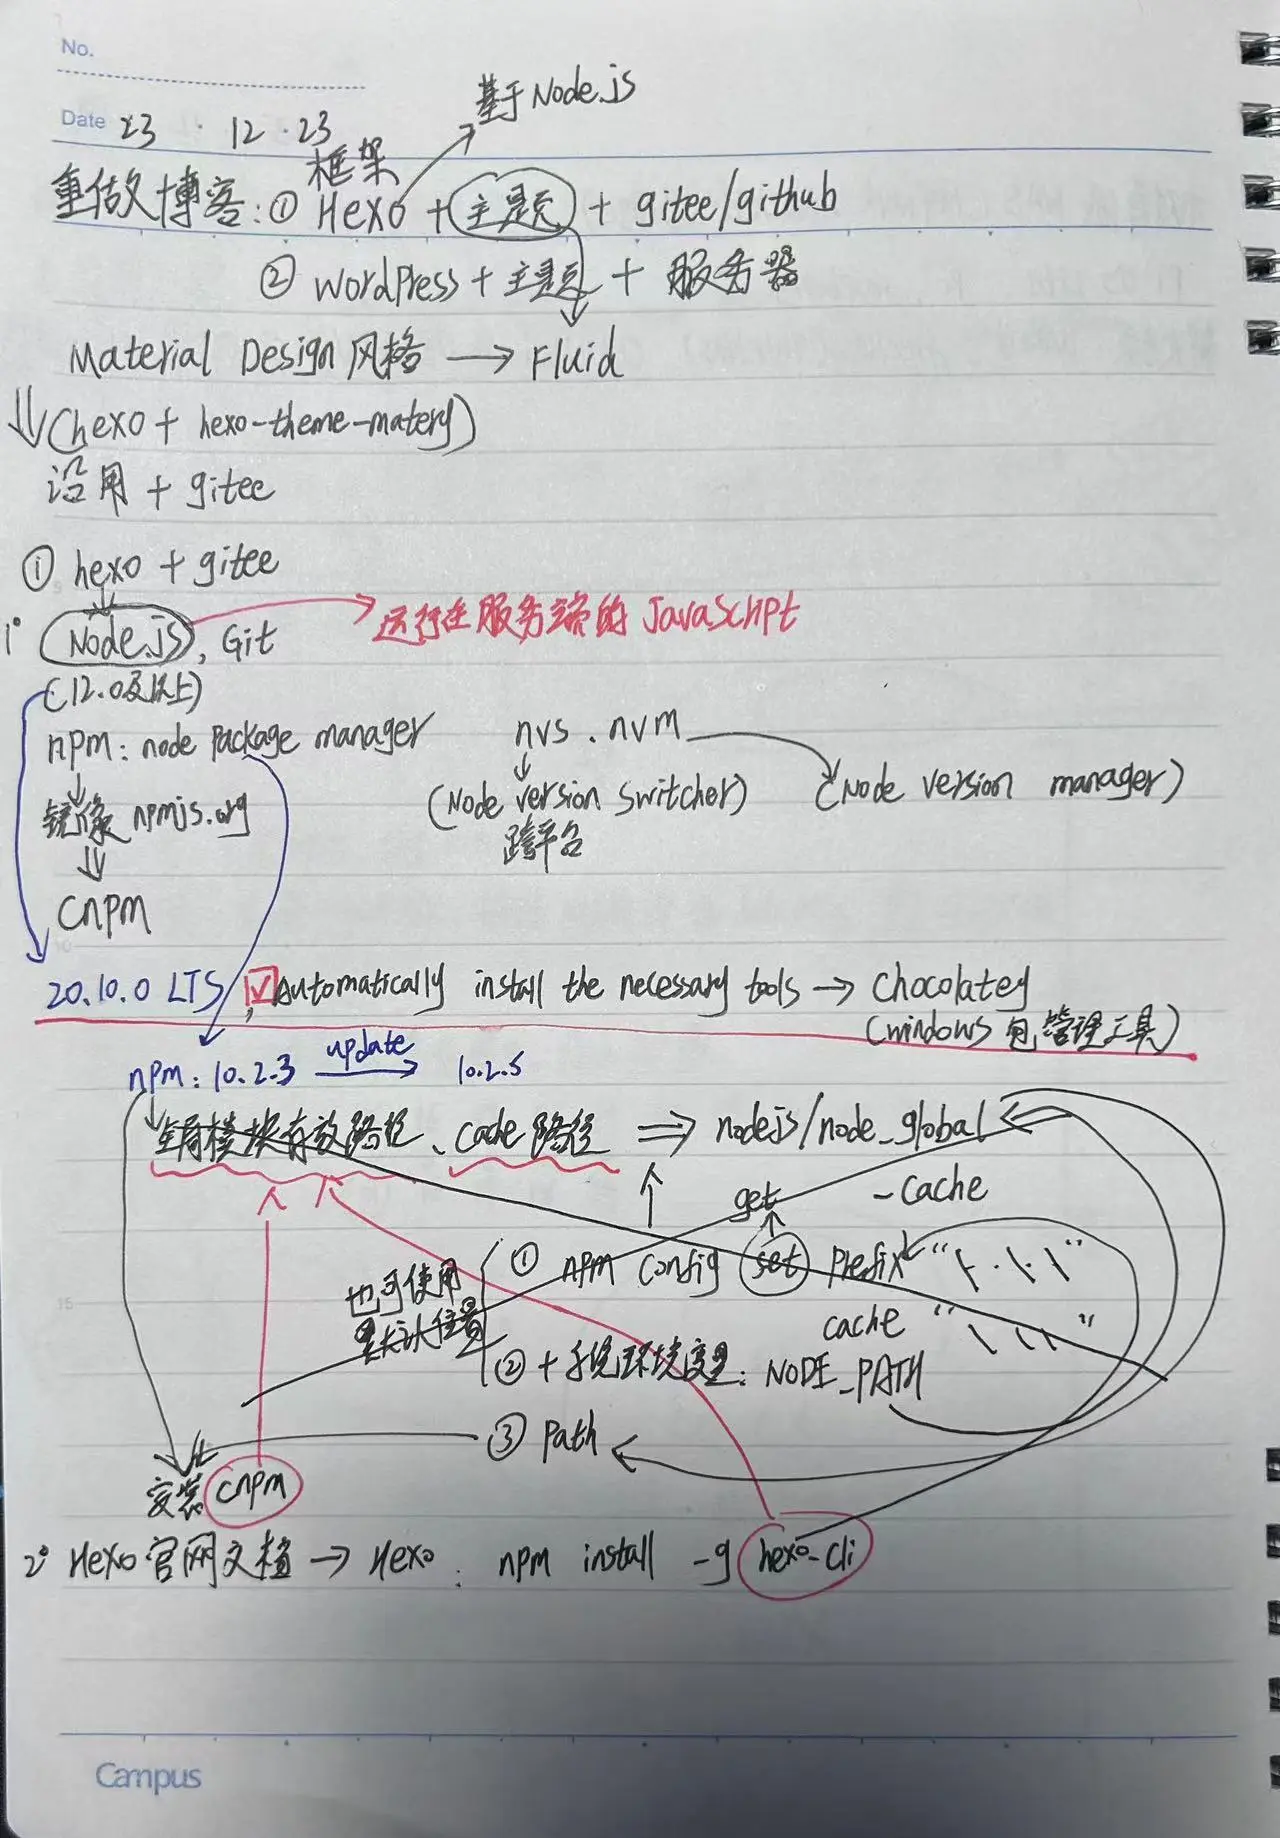 No.
基于Node.js
Date 23 · 12 · 23
框架
重做博客:① Hexo + 主题 + gitee/github
② WordPress + 主题 + 服务器
Material Design 风格 → Fluid
(hexo + hexo-theme-matery)
沿用 + gitee
① hexo + gitee
1° Node.js, Git → 运行在服务端的 JavaScript
(12.0及以上)
npm: node package manager
nvs . nvm
(Node version switcher) (Node version manager)
跨平台
镜像 npmjs.org
cnpm
20.10.0 LTS, ☑ Automatically install the necessary tools → chocolatey
(windows 包管理工具)
npm: 10.2.3 update → 10.2.5
全局模块存放路径、cache 路径 ⇒ nodejs/node_global
_cache
get
① npm config set prefix "
cache "
也可使用
默认位置
② + 系统环境变量: NODE_PATH
③ Path
安装 cnpm
2° Hexo 官网文档 → Hexo: npm install -g hexo-cli
Campus